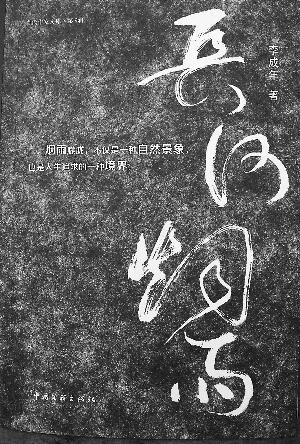 長河烟雨
李成年 著
烟雨朦胧，不仅是一种自然景象，
也是人生追求的一种境界。
中国文联出版社